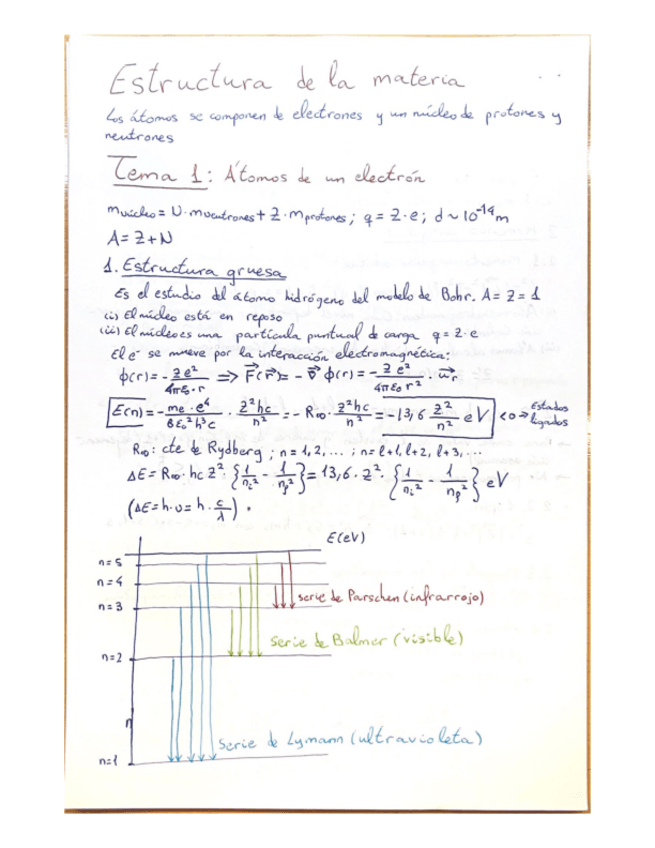 Estructura de la materia
Los átomos se componen de electrones y un núcleo de protones y
neutrones
Tema 1: Átomos de un electrón
m núcleo = N · m neutrones + Z · m protones ; q = Z · e ; d ~ 10⁻¹⁴ m
A = Z + N
1. Estructura gruesa
Es el estudio del átomo hidrógeno del modelo de Bohr. A = Z = 1
(i) El núcleo está en reposo
(ii) El núcleo es una partícula puntual de carga q = z · e
El e⁻ se mueve por la interacción electromagnética:
ϕ(r) = - Ze²/4πε₀·r => F(r) = -∇ϕ(r) = - Ze²/4πε₀r² · ur
E(n) = - me·e⁴/8ε₀²h³c · Z²hc/n² = - R∞ · Z²hc/n² = -13,6 · Z²/n² eV < 0 → Estados ligados
R∞: cte de Rydberg ; n = 1, 2, ... ; n = l+1, l+2, l+3, ...
ΔE = R∞ · hc Z² · {1/ni² - 1/nf²} = 13,6 · Z² · {1/ni² - 1/nf²} eV
(ΔE = h·υ = h · c/λ) .
E(eV)
n=5
n=4
n=3
serie de Parschen (infrarrojo)
Serie de Balmer (visible)
n=2
n
Serie de Lymann (ultravioleta)
n=1